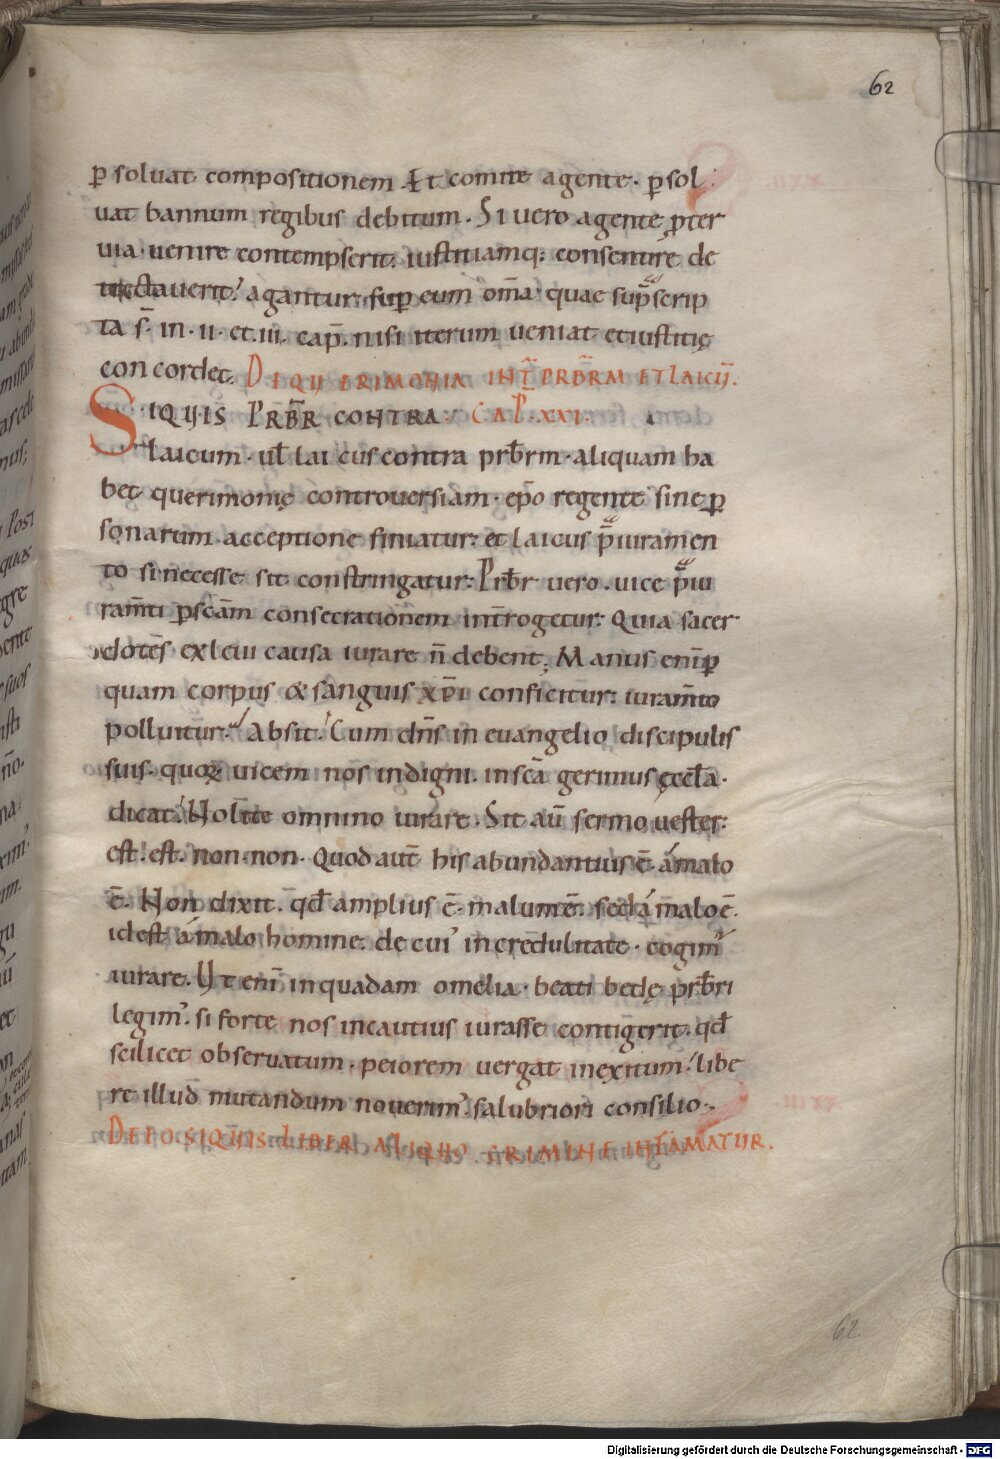 62
p̲soluat compositionem. Et comite agente. p̲sol
uat bannum regibus debitum. Si vero agente p̲ter
uia uenire contempserit. iustitiamq; consentire de
trectauerit. agantur sup̲ eum om̄a quae sup̄scrip
ta s̄. in .ii. et .iii. cap̄. nisi iterum ueniat et iustitię
concordet. DE QUERIMONIA INT̄ PRB̄RM ET LAICŪ.
SIQUIS PRB̄R CONTRA CAP̄. XXI.
laicum. ul̄ laicus contra prb̄rm. aliquam ha
bet querimonię controuersiam. ep̄o regente sine p̲
sonarum acceptione finiatur. et laicus p̄ iuramen
to si necesse sit constringatur. Prb̄r uero. uice p̄ iu
ram̄ti p̲ sc̄am consecrationem int̄rogetur. Quia sacer
dotes ex leui causa iurare n̄ debent. Manus enim p̲
quam corpus & sanguis xp̄i conficitur. iuram̄to
polluitur. Absit. Cum dn̄s in euangelio discipulis
suis. quoꝝ uicem nos indigni. in sc̄a gerimus ęccl̄a.
dicat. Nolite omnino iurare. Sit aū sermo uester.
est. est. non. non. Quod autē his abundantius ē. a malo
ē. Non dixit. qd̄ amplius ē. malum ē. sed a malo ē.
id est a malo homine. de cui' incredulitate. cogim'
iurare. Ut eni in quadam omelia. beati bedę prb̄ri
legim'. si forte nos incautius iurasse contigerit. qd̄
scilicet obseruatum. peiorem uergat in exitum. libe
re illud mutandum nouerim'. salubriori consilio.
DE EO SIQUIS LIBER ALIQUO CRIMINE INFAMATUR.
62
Digitalisierung gefördert durch die Deutsche Forschungsgemeinschaft - DFG